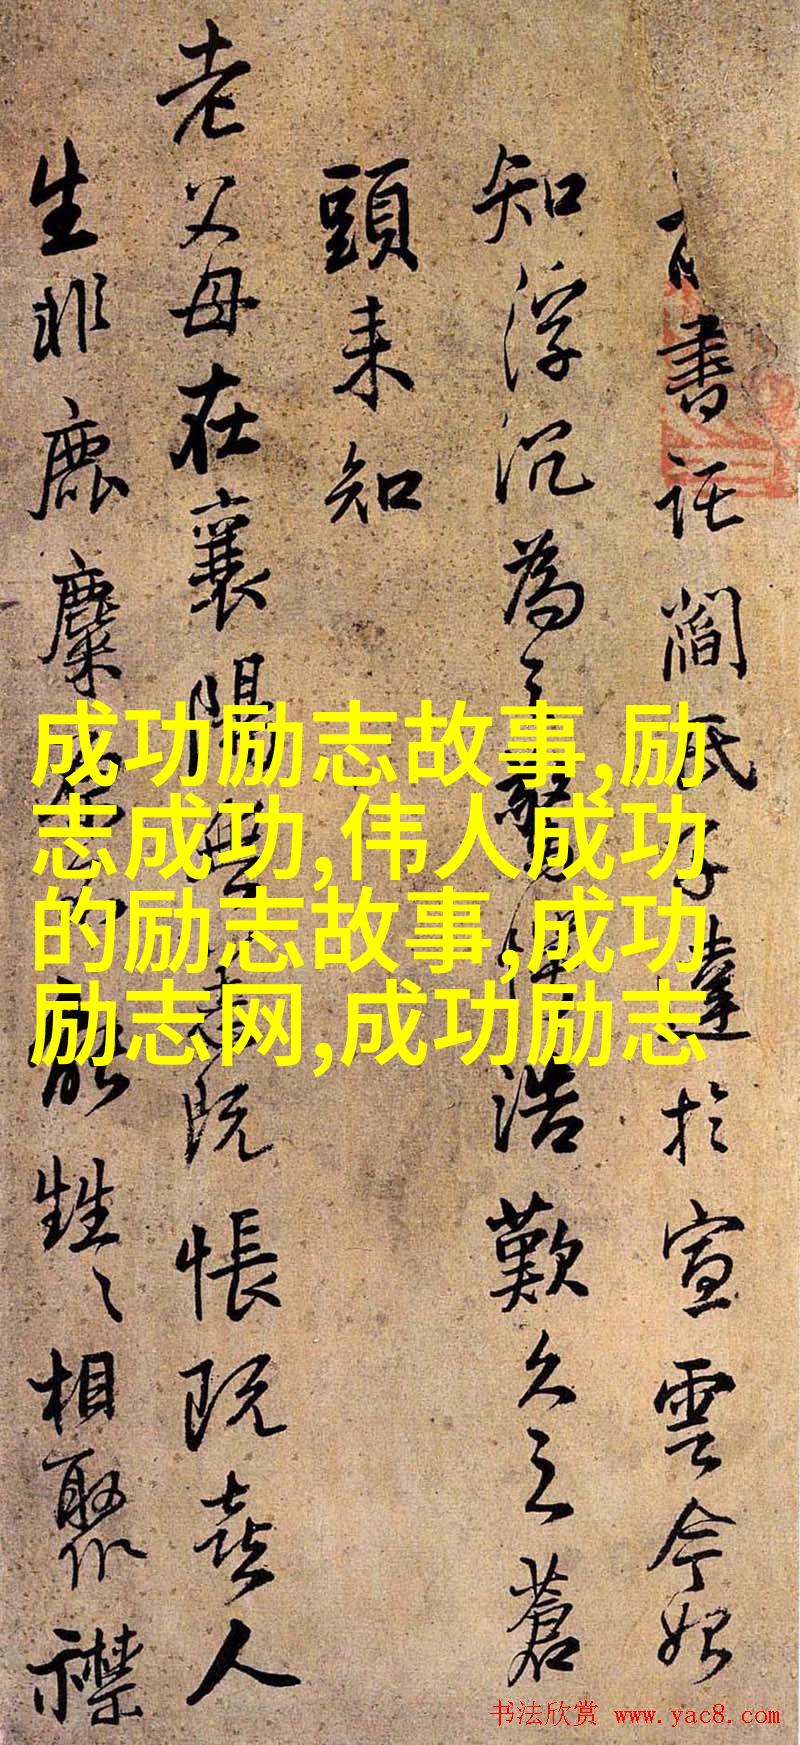 書 託 閻 氏 子 達 於 宣 雲 今 始
知 浮 沉 為 之 驚 浩 歎 久 之 蒼
頭 来 知
老 父 母 在 襄 陽 無 恙 既 悵 既 喜 人
生 非 鹿 麋 能 甡 々 相 聚
成功励志故事,励
志成功,伟人成功
的励志故事,成功
励志网,成功励志
书法欣赏 www.yac8.com